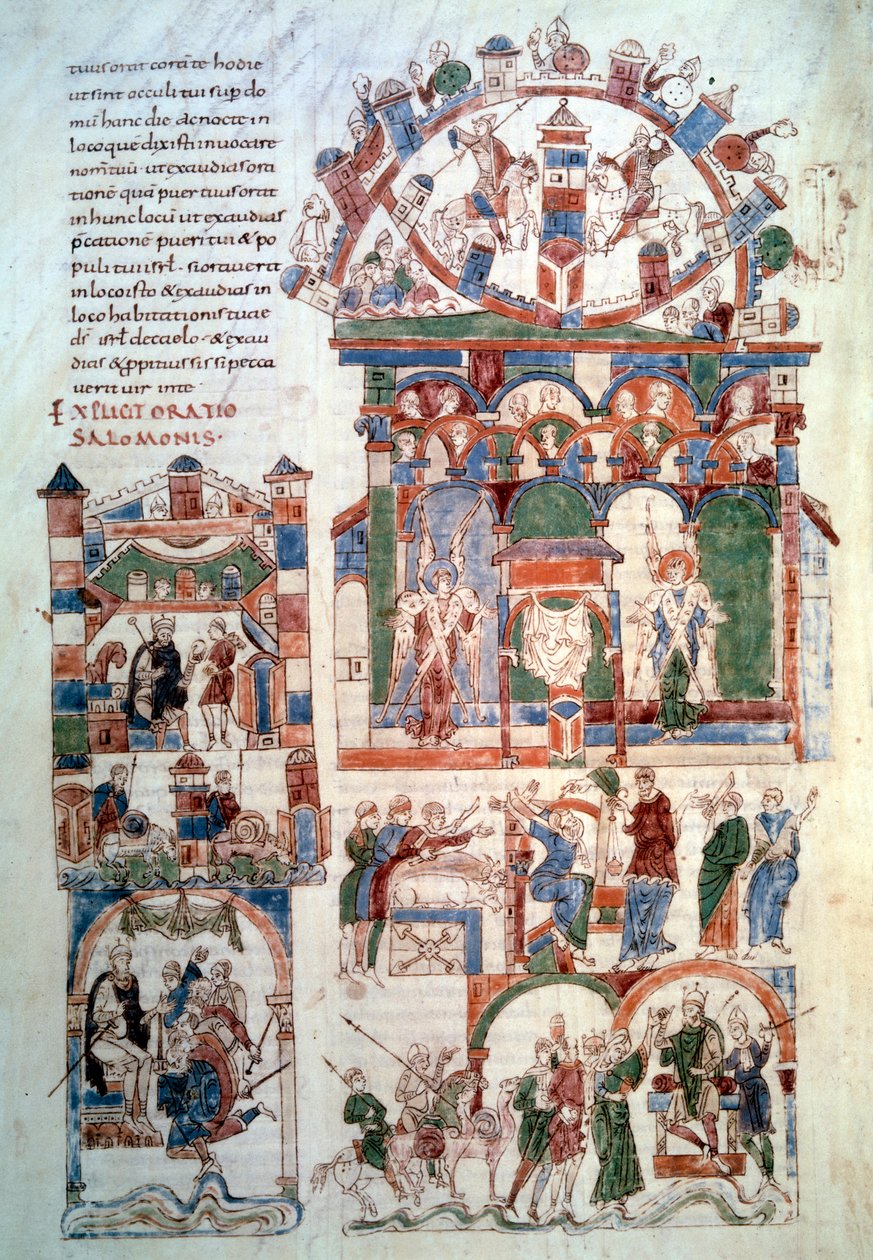 tuus orat corā te hodie
ut sint occuli tui sup do
mū hanc die ac nocte in
loco quē dixisti invocare
nom̄ tuū · ut exaudias ora
tionē quā puer tuus orat
in hunc locū ut exaudias
p̄cationē pueri tui & po
puli tui isrl̄ · si oraverit
in loco isto & exaudias in
loco habitationis tuae
d̄s isrl̄ de caelo · & exau
dias & ppitius sis si pecca
verit vir inte ·
EXPLICIT ORATIO
SALOMONIS ·